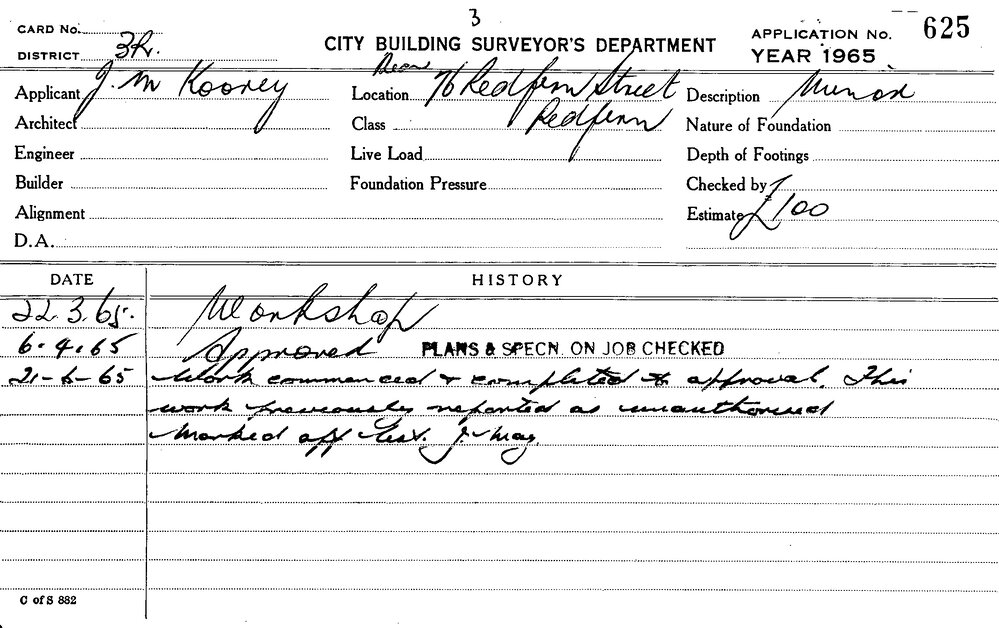 3
CARD No.
DISTRICT 3R.
CITY BUILDING SURVEYOR'S DEPARTMENT
APPLICATION No. 625
YEAR 1965
Applicant J. M Kooney
Rear
Location 76 Redfern Street
Redfern
Description Minor
Architect
Class
Nature of Foundation
Engineer
Live Load
Depth of Footings
Builder
Foundation Pressure
Checked by
Alignment
Estimate £100
D.A.
DATE HISTORY
22.3.65. Workshop
6.4.65 Approved PLANS & SPECN. ON JOB CHECKED
21-6-65 Work commenced & completed to approval. This
work previously reported as unauthorised
Marked off List. J. May.
C of S 882